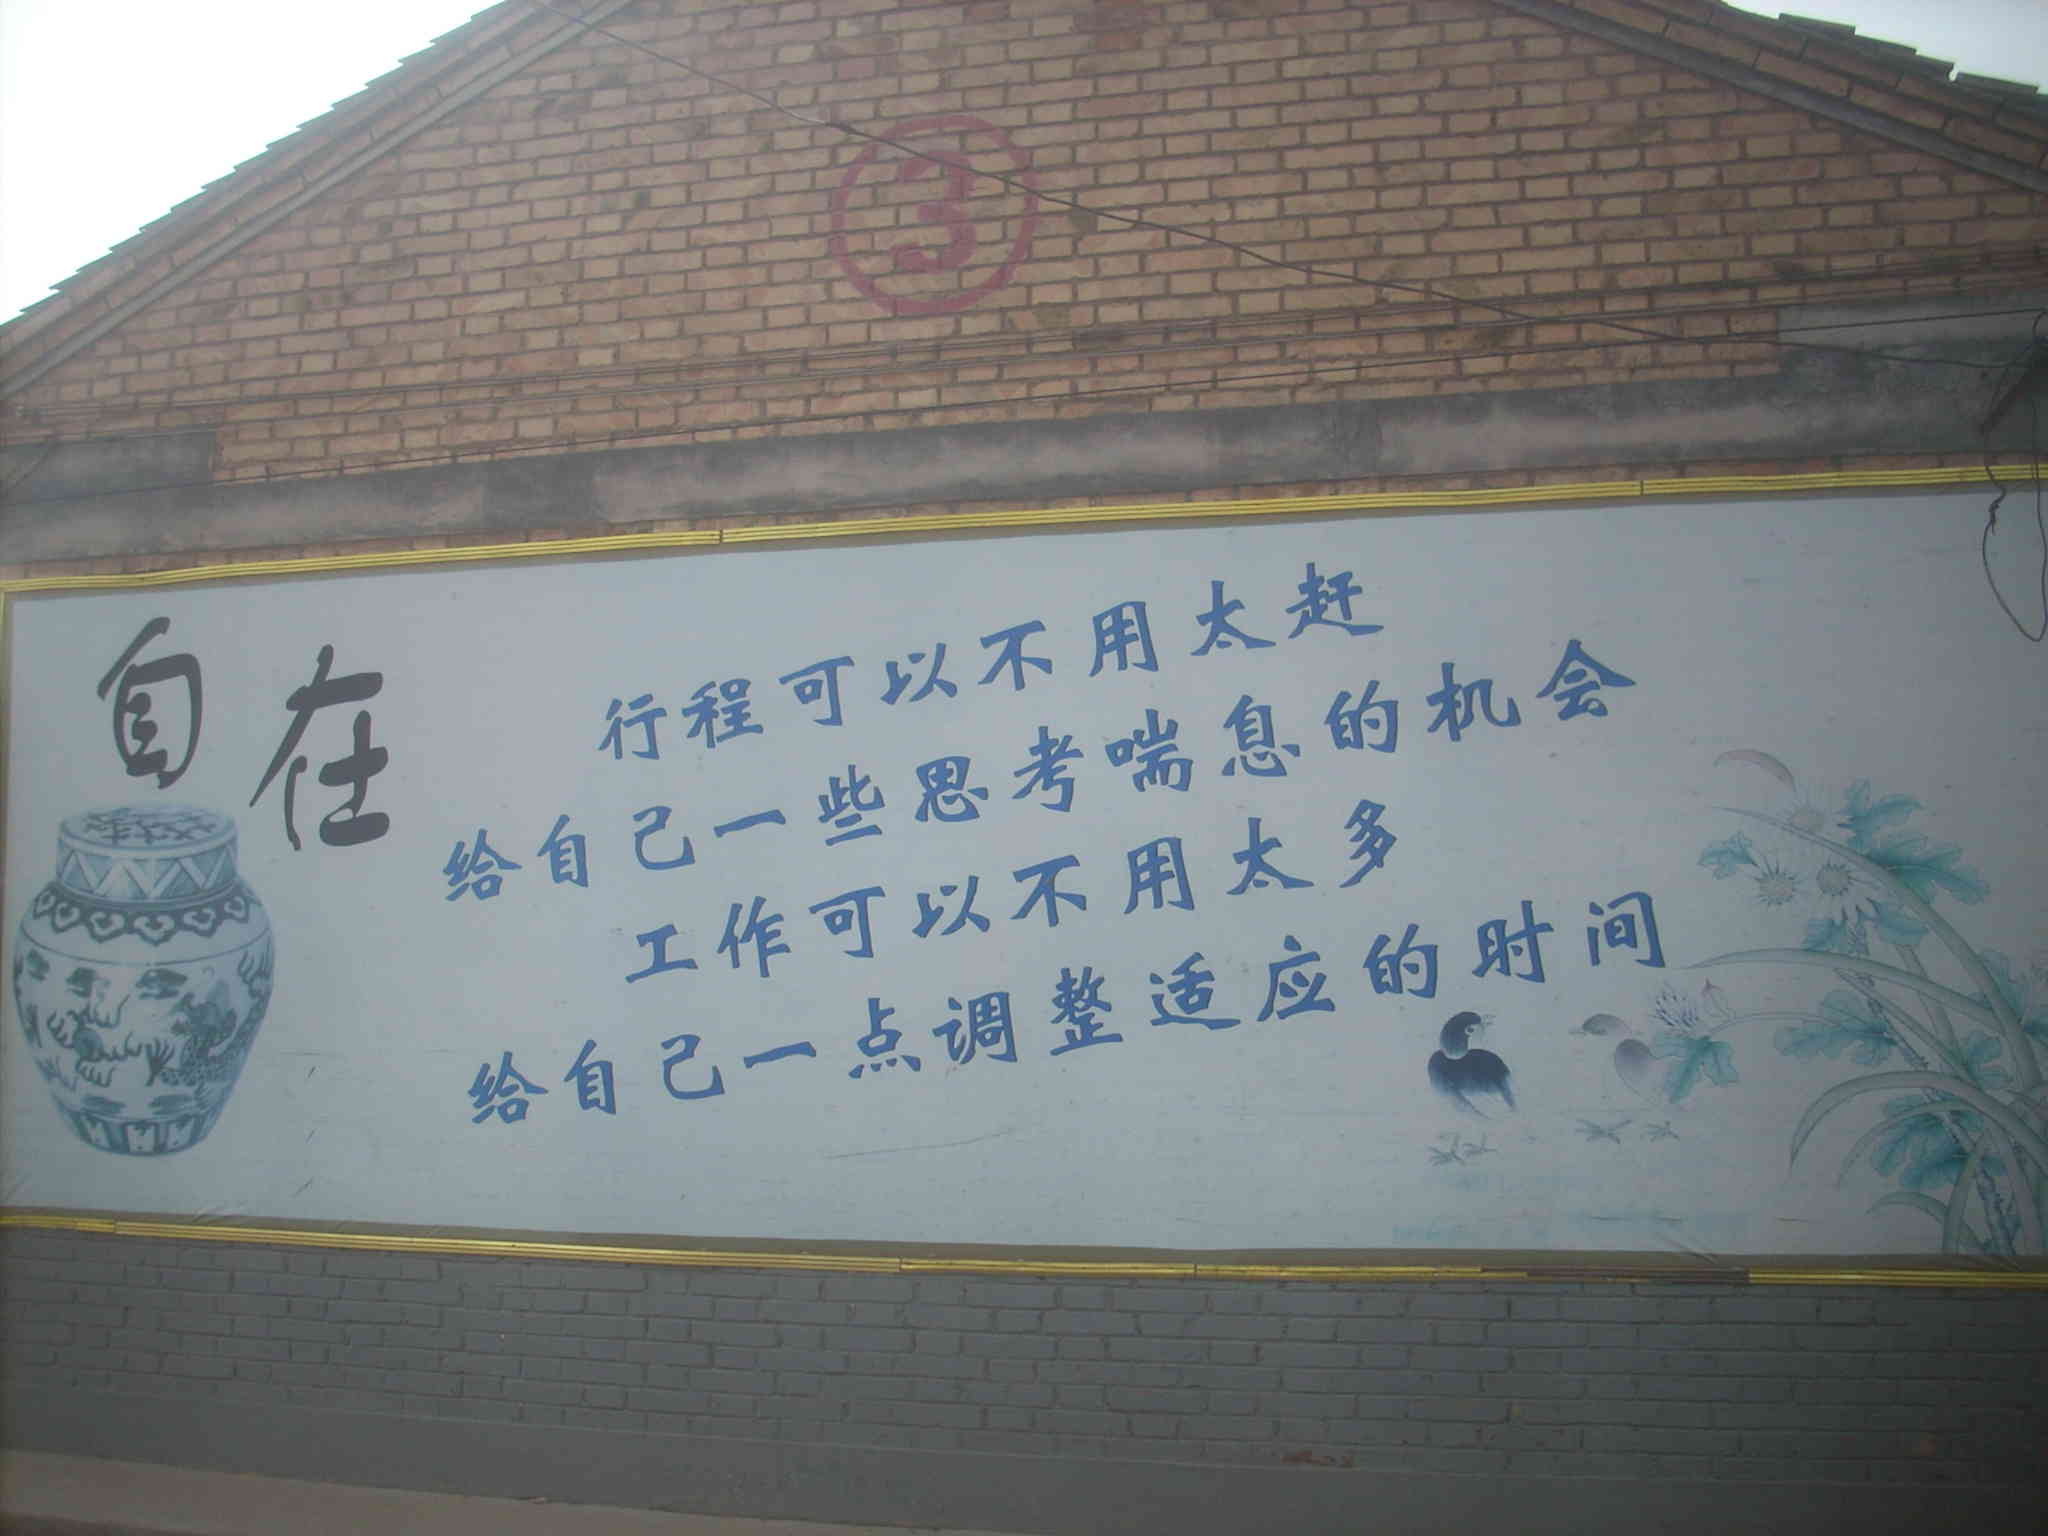 ③
自在
行程可以不用太赶
给自己一些思考喘息的机会
工作可以不用太多
给自己一点调整适应的时间